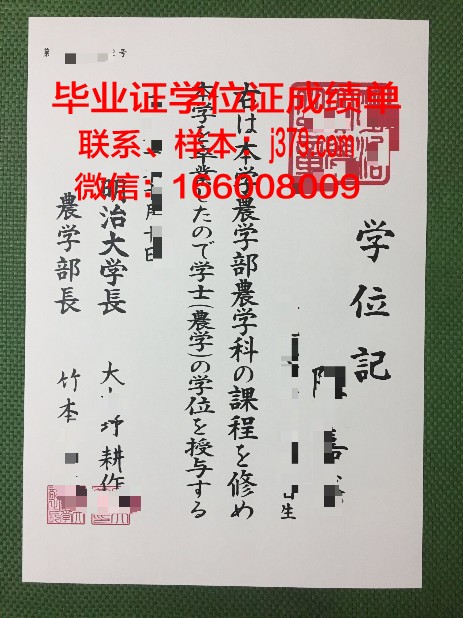 第 号
毕业证学位证成绩单
联系、样本：j379.com
微信：166008009
学位記
生
右は本学農学部農学科の課程を修め
本学を卒業したので学士(農学)の学位を授与する
月十日
明治大学長 大 耕作
農学部長 竹本